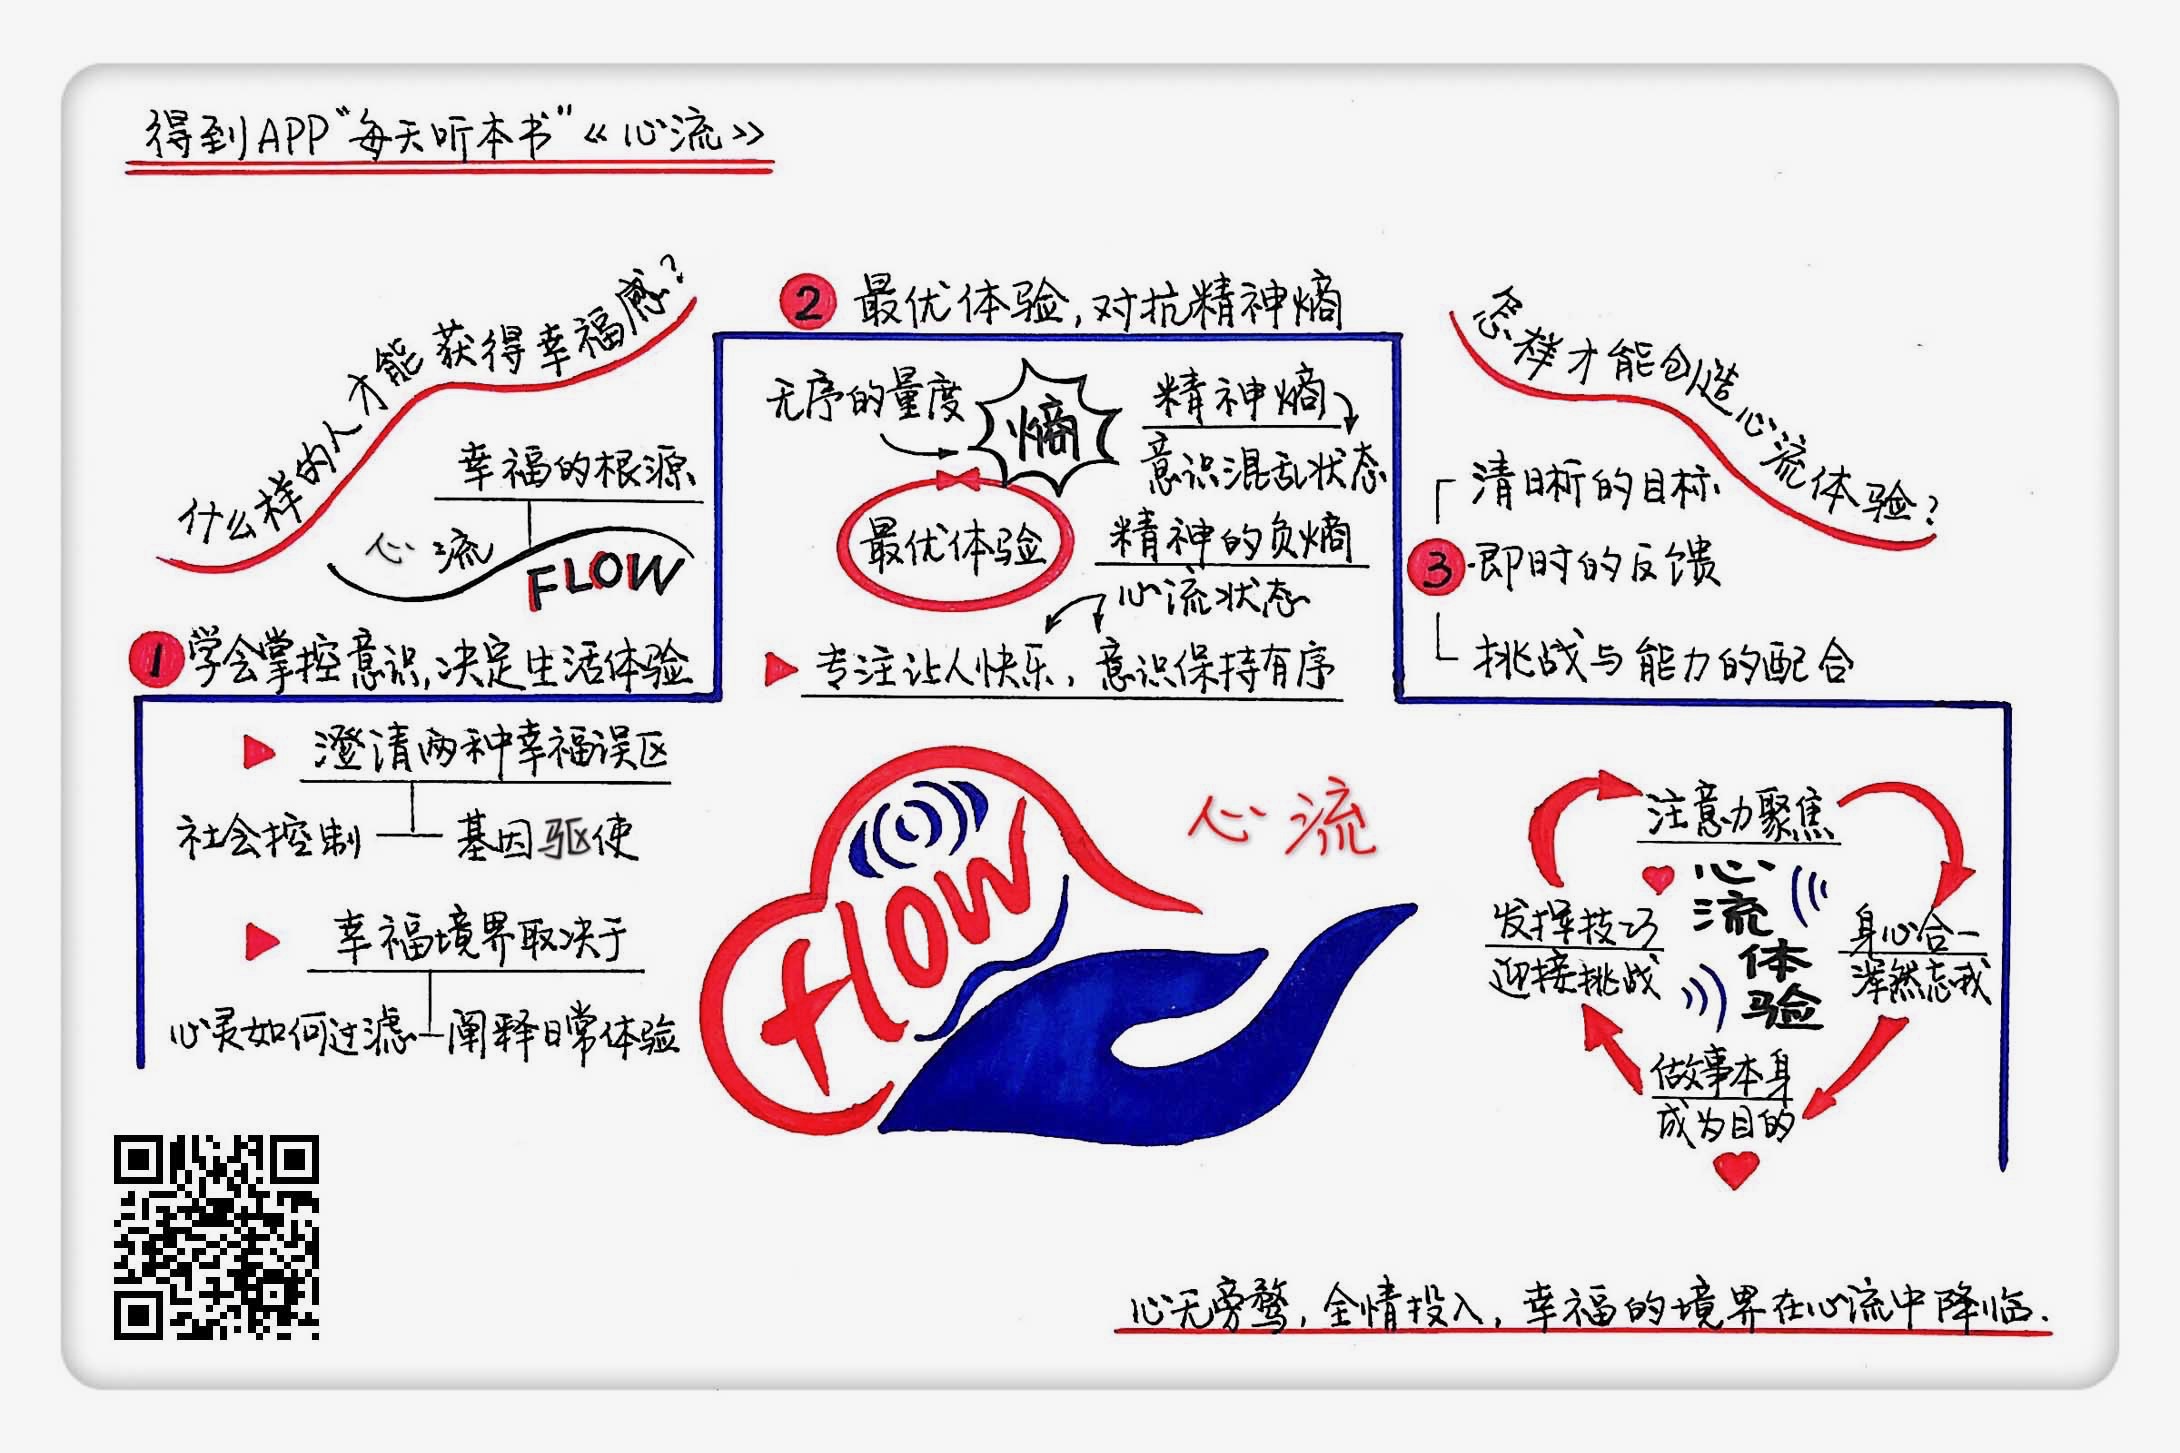 得到APP“每天听本书”《心流》
什么样的人才能获得幸福感?
幸福的根源
心流
FLOW
1 学会掌控意识,决定生活体验
澄清两种幸福误区
社会控制
基因驱使
幸福境界取决于
心灵如何过滤
阐释日常体验
2 最优体验,对抗精神熵
无序的量度
熵
精神熵
意识混乱状态
最优体验
精神的负熵
心流状态
专注让人快乐,意识保持有序
怎样才能创造心流体验?
清晰的目标
3 即时的反馈
挑战与能力的配合
flow
心流
注意力聚焦
身心合一
浑然忘我
做事本身
成为目的
发挥技巧
迎接挑战
心流
体验
心无旁骛,全情投入,幸福的境界在心流中降临.